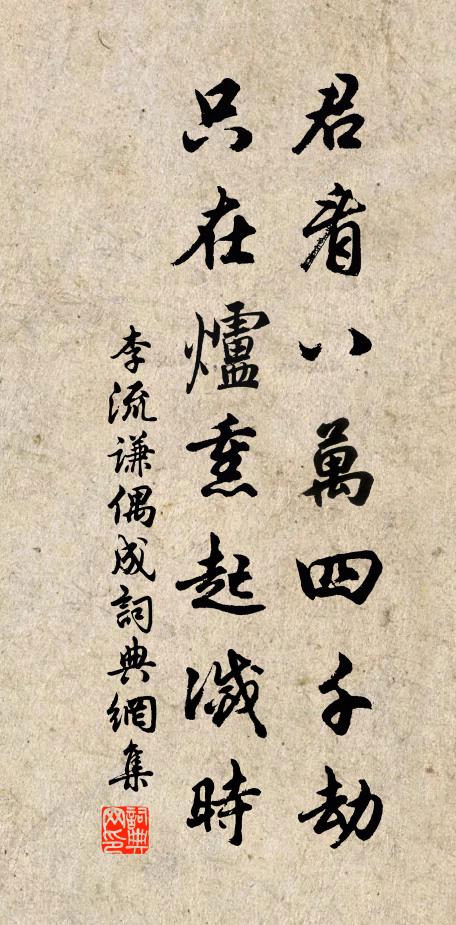 君看八萬四千劫
只在爐熏起滅時
李流谦偶成詞典網集
詞典网印